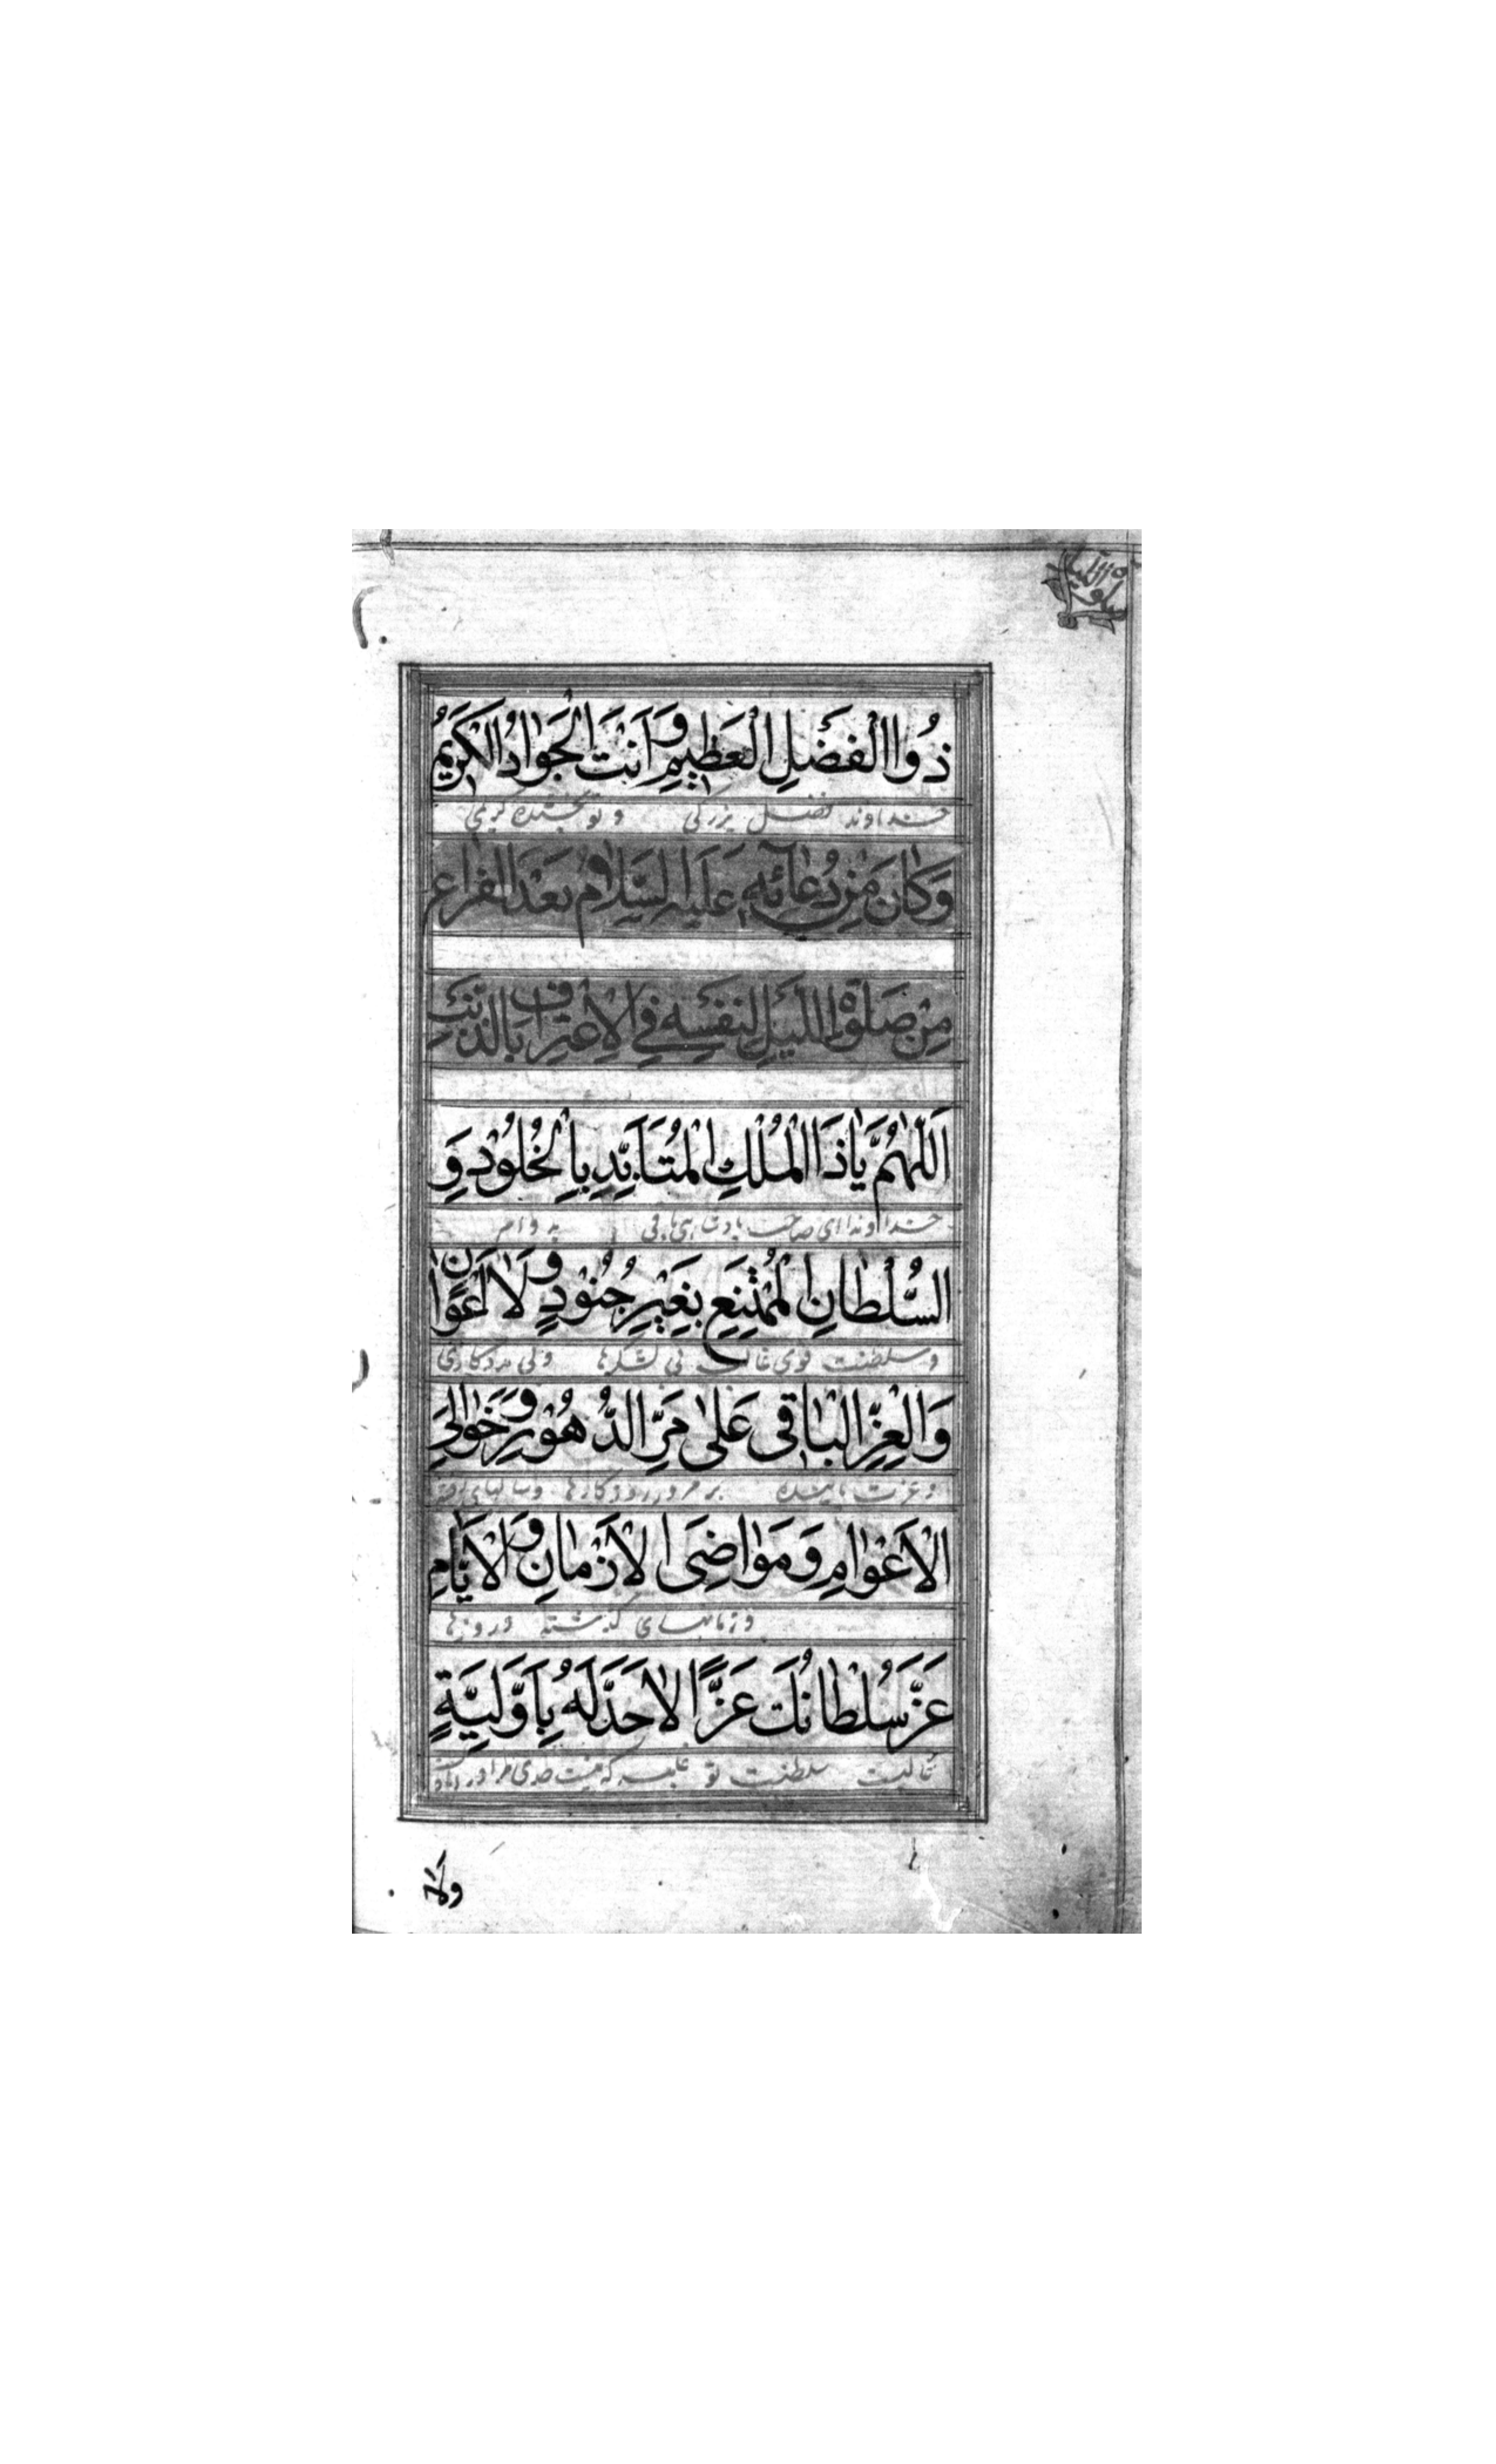 ذُوا الْفَضْلِ الْعَظِيمِ وَ اَنْتَ الْجَوٰادُ الْكَرِيمُ
خداوند فضل بزرگی و تو بخشنده کریمی
وَكٰانَ مِنْ دُعٰائِهِ عَلَيْهِ السَّلَامُ بَعْدَ الْفَرٰاغِ
مِنْ صَلٰوةِ اللَّيْلِ لِنَفْسِهِ فِي الْاِعْتِرٰافِ بِالذَّنْبِ
اَللّٰهُمَّ يٰا ذَا الْمُلْكِ الْمُتَاَبِّدِ بِالْخُلُوْدِ وَ
خداوندا ای صاحب پادشاهی باقی به دوام
السُّلْطٰانِ الْمُمْتَنِعِ بِغَيْرِ جُنُوْدٍ وَ لٰا اَعْوٰانٍ
و سلطنت قوی غالب بی لشکرها و بی مددکاری
وَ الْعِزِّ الْبٰاقِی عَلٰی مَرِّ الدُّهُوْرِ وَ خَوٰالِی
و عزت پاینده بر مرور روزکارها و سالهای
الْاَعْوٰامِ وَ مَوٰاضِیَ الْاَزْمٰانِ وَ الْاَيّٰامِ
و زمانهای گذشته و روزها
عَزَّ سُلْطٰانُكَ عِزًّا لٰا حَدَّ لَهُ بِاَوَّلِيَّةٍ
غالبست سلطنت تو غلبه که نیست حدی مر او را
وَلَا